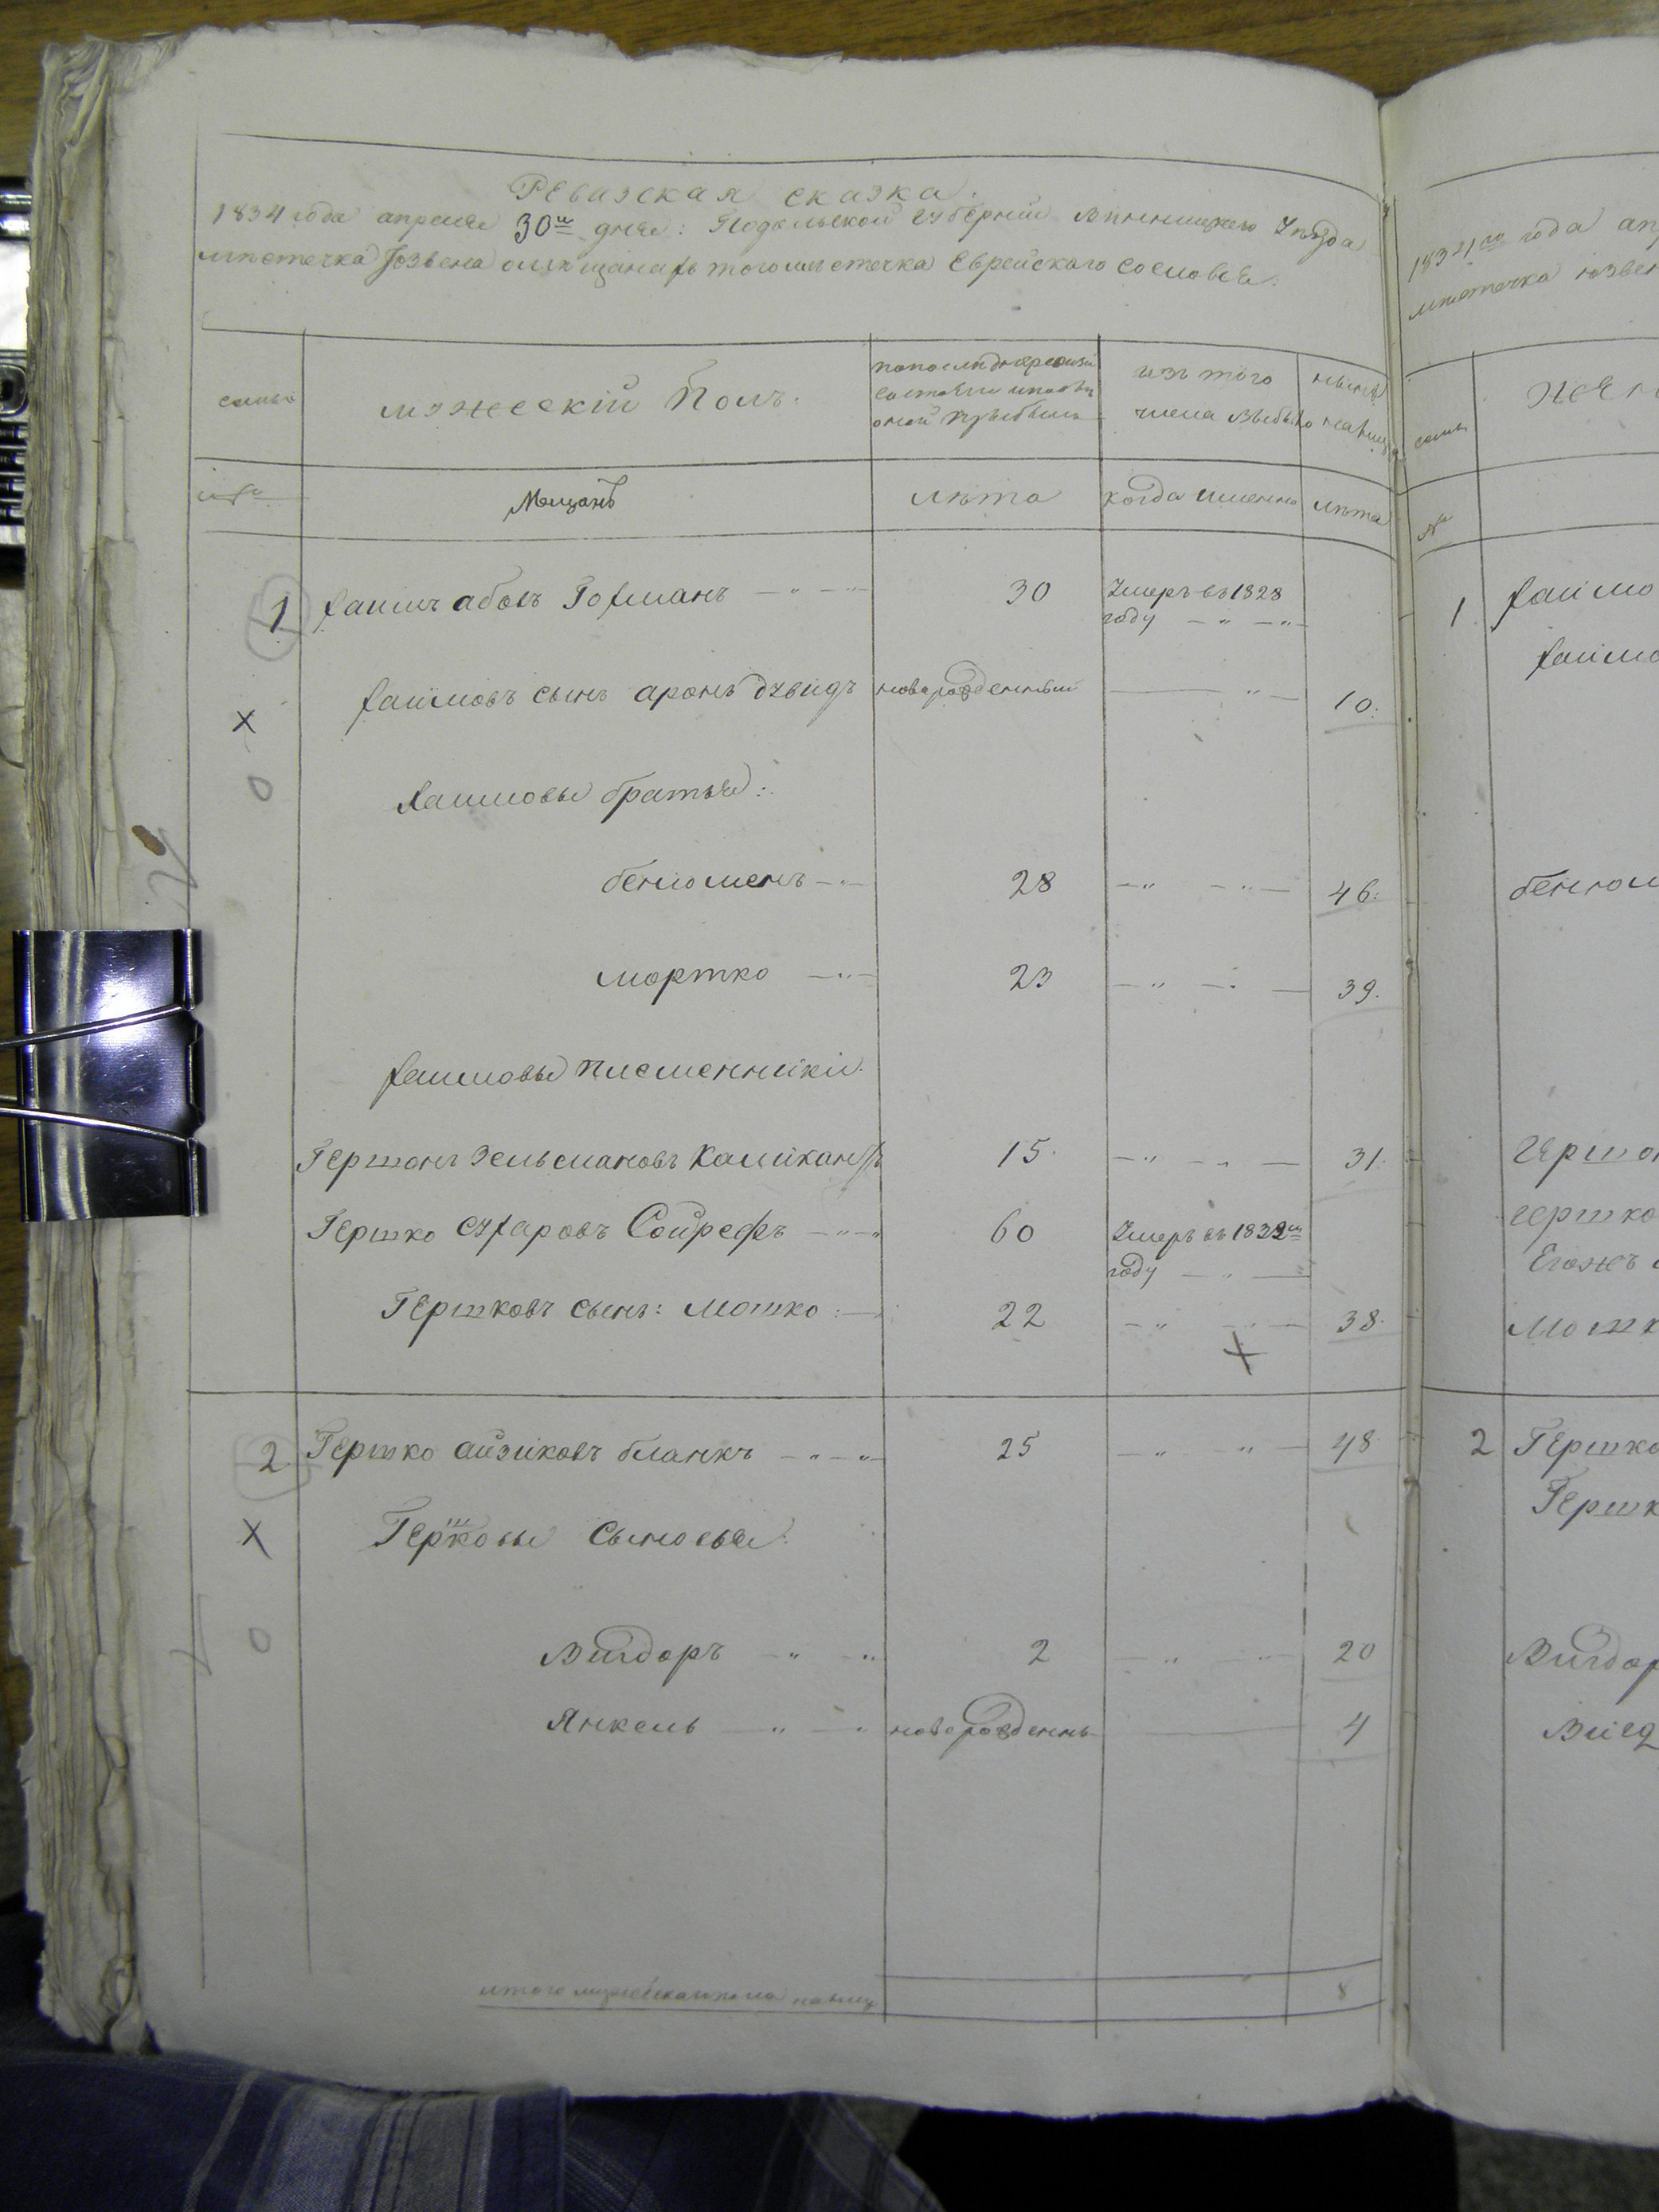 Ревизская сказка.
1834 года апреля 30го дня: Подольской губернии Винницкого Уѣзда
мѣстечка Юзвена о мѣщанахъ того мѣстечка Еврейского сословія.
семьи
мужескій Полъ.
по последней ревизіи
состояло и после
оной прибыло
изъ того
числа выбыло
ныне
на лицо
№
Мещанъ
лѣта
когда именно
лѣта
1 Хаимъ абовъ Гофманъ — " — " 30 Умеръ въ 1828
году — " — "
Хаимовъ сынъ аронъ дувидъ новорожденный — " — 10.
Хаимовы братья:
бениоменъ — " — 28 — " — " — 46.
мортко — " — 23 — " — " — 39.
Хаимовы племенники.
Гершонъ Зельмановъ 15. — " — " — 31.
Гершко сухаровъ Сойрефъ — " — " 60 Умеръ въ 1832м
году — " —
Гершковъ сынъ: мошко: — 22 — " — " — 38.
2 Гершко айзиковъ бланкъ — " — " 25 — " " — 48
Гершковы сыновья:
Вигдоръ — " — " 2 — " — " 20
Янкель — " — " новорожденнъ — 4
итого мужеска пола на лицо 8
1834го года ап
мѣстечка юзвен
семьи
жен
№
1 Хаимо
Хаимо
бенюм
Гершо
гершко
Егожъ
Мошк
2 Гершко
Гершк
Вигдор